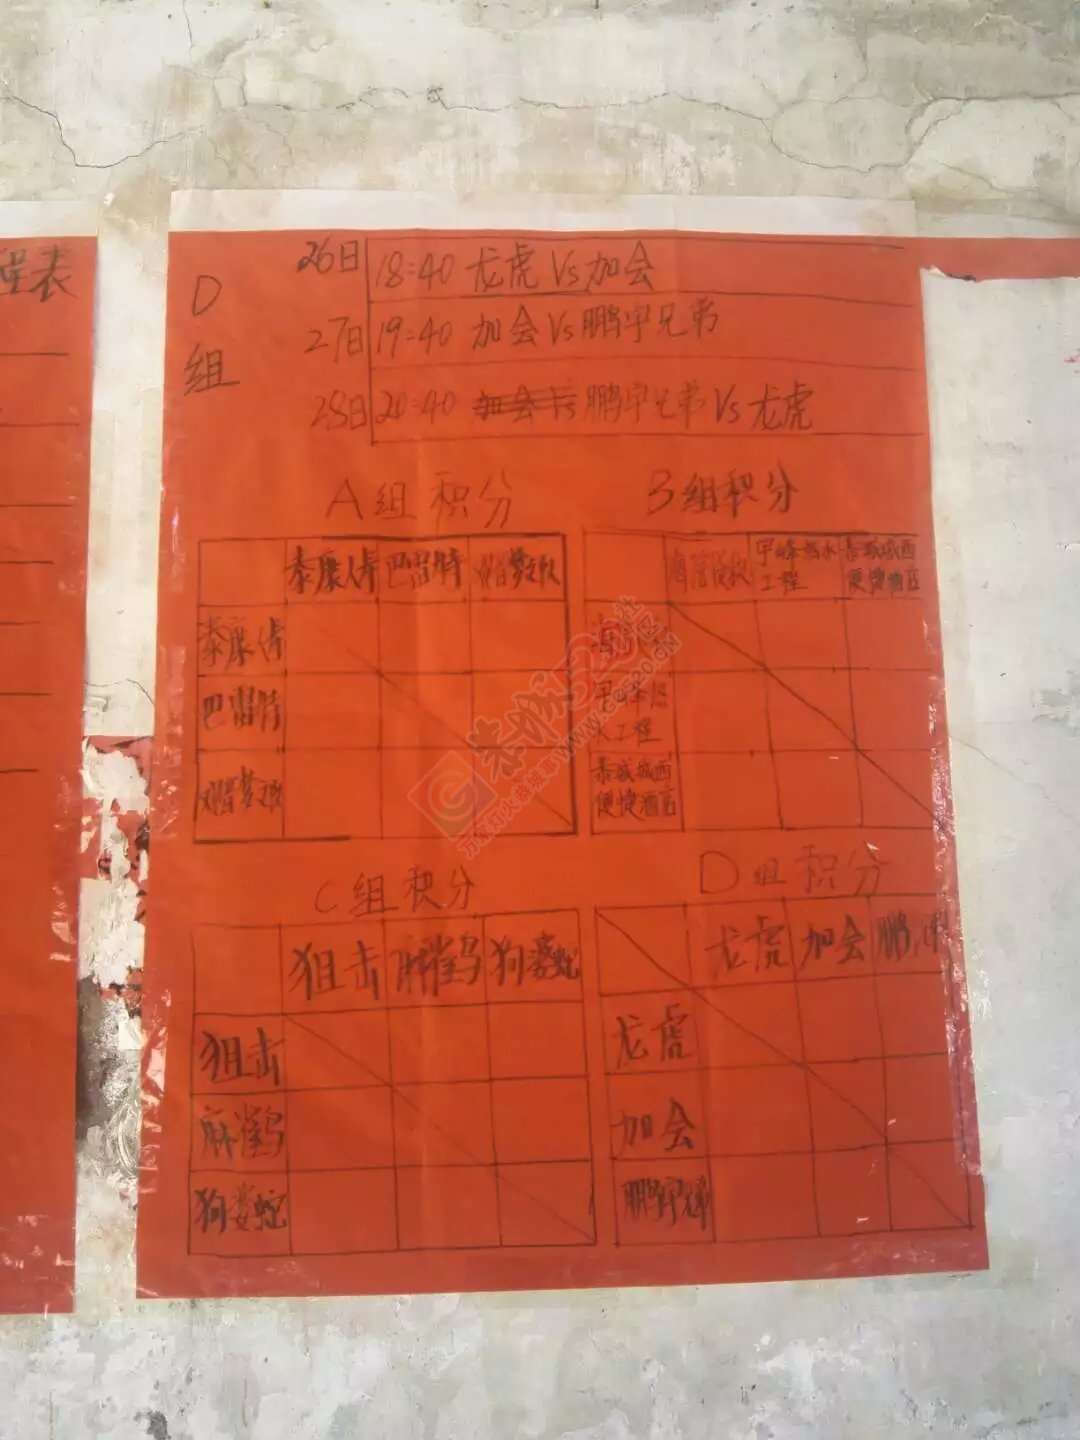 程表
D
组
26日 18:40 龙虎 Vs 加会
27日 19:40 加会 Vs 鹏宇兄弟
28日 20:40 加会 Vs 鹏宇兄弟 Vs 龙虎
A组积分
泰康人寿 巴雷特 梦之队
泰康人寿
巴雷特
梦之队
B组积分
热水工程 恭城城西便捷酒店
工程
恭城城西便捷酒店
C组积分
狙击 麻雀 狗婆蛇
狙击
麻雀
狗婆蛇
D组积分
龙虎 加会 鹏宇
龙虎
加会
鹏宇兄弟
恭城520社区
www.GC520.CN